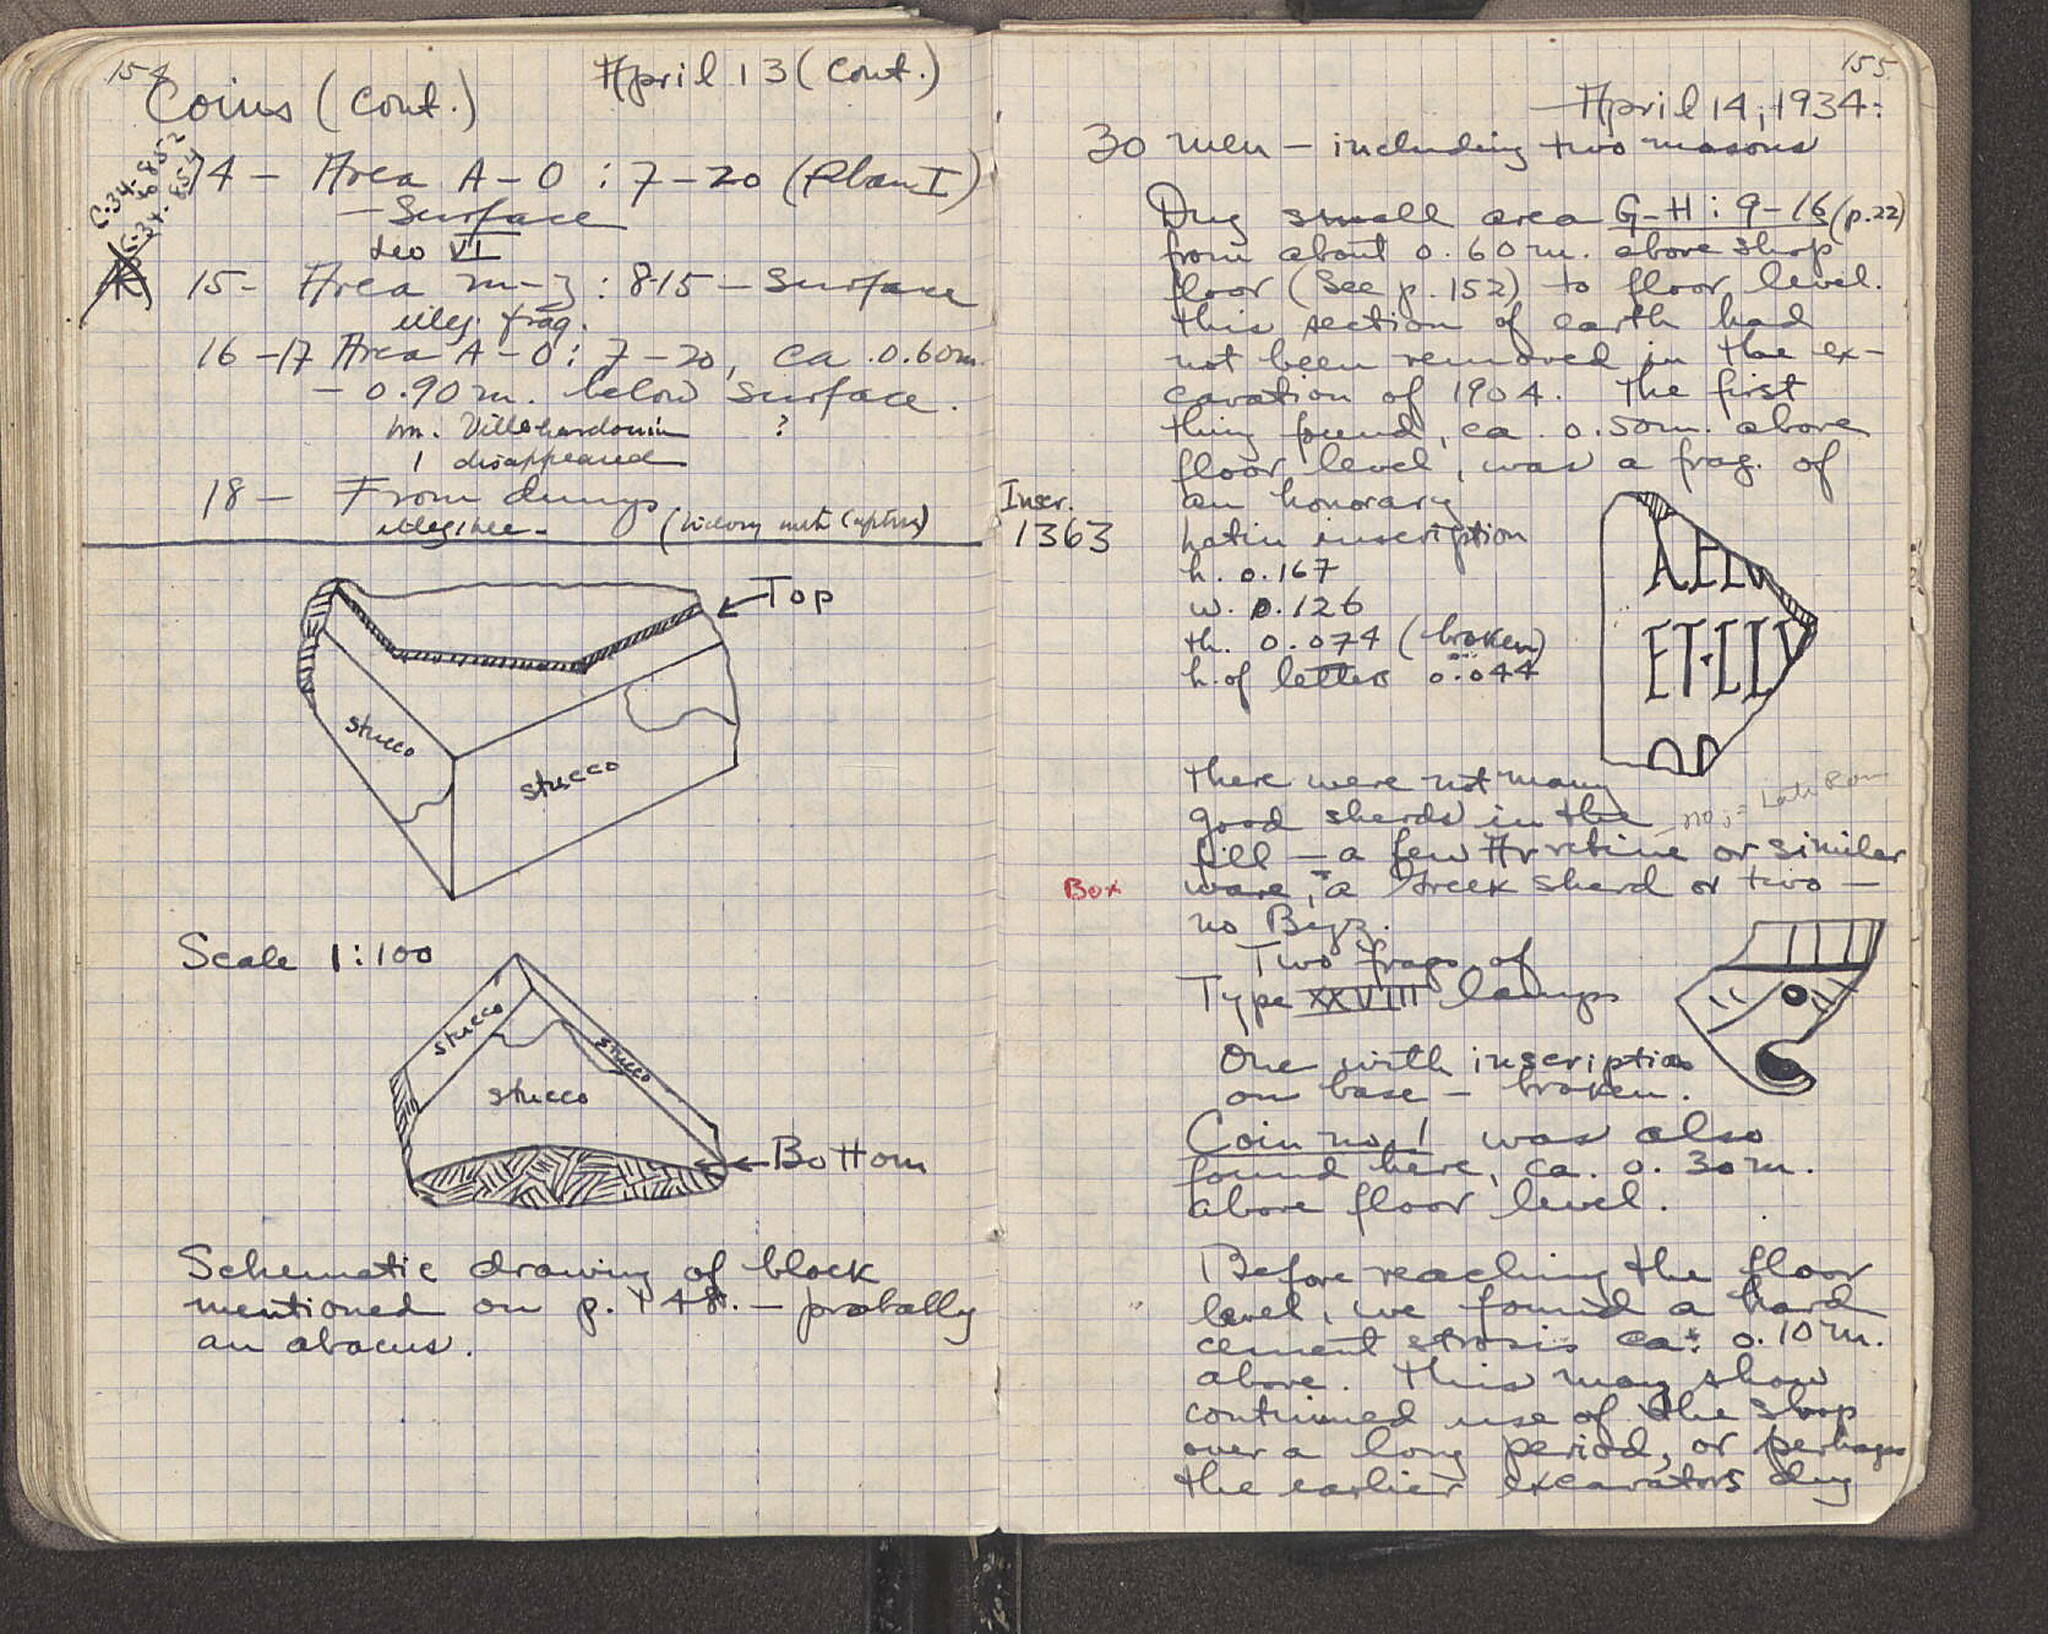 154
April 13 (Cont.)
Coins (Cont.)
C.34. 852
to
C.34. 854
14 - Area A-O : 7-20 (Plan I)
- Surface
Leo VI
15- Area m-z : 8-15 - Surface
illeg. frag.
16-17 Area A-O : 7-20, ca .0.60m.
- 0.90 m. below surface.
Wm. Villehardouin ?
1 disappeared
18 - From dump
illegible - (Victory with Captive)
Top
stucco
stucco
Scale 1:100
stucco
stucco
stucco
Bottom
Schematic drawing of block
mentioned on p. 148. - probably
an abacus.
155
April 14, 1934:
30 men - including two masons
Dug small area G-H : 9-16 (p.22)
from about 0.60 m. above shop
floor (See p. 152) to floor level.
This section of earth had
not been removed in the ex-
cavation of 1904. The first
thing found, ca. 0.50m. above
floor level, was a frag. of
Inscr.
1363
an honorary
Latin inscription
h. 0.167
w. 0.126
th. 0.074 (broken)
h. of letters 0.044
ET·LLV
There were not many
good sherds in the
- no; = Late Rom
fill - a few Arretine or similar
Box
ware, a Greek sherd or two -
no Byz.
Two frags of
Type XXVIII lamps
One with inscription
on base - broken.
Coin no. 1 was also
found here, ca. 0.30m.
above floor level.
Before reaching the floor
level, we found a hard
cement strosis ca. 0.10 m.
above. This may show
continued use of the shop
over a long period, or perhaps
the earlier excavators dug